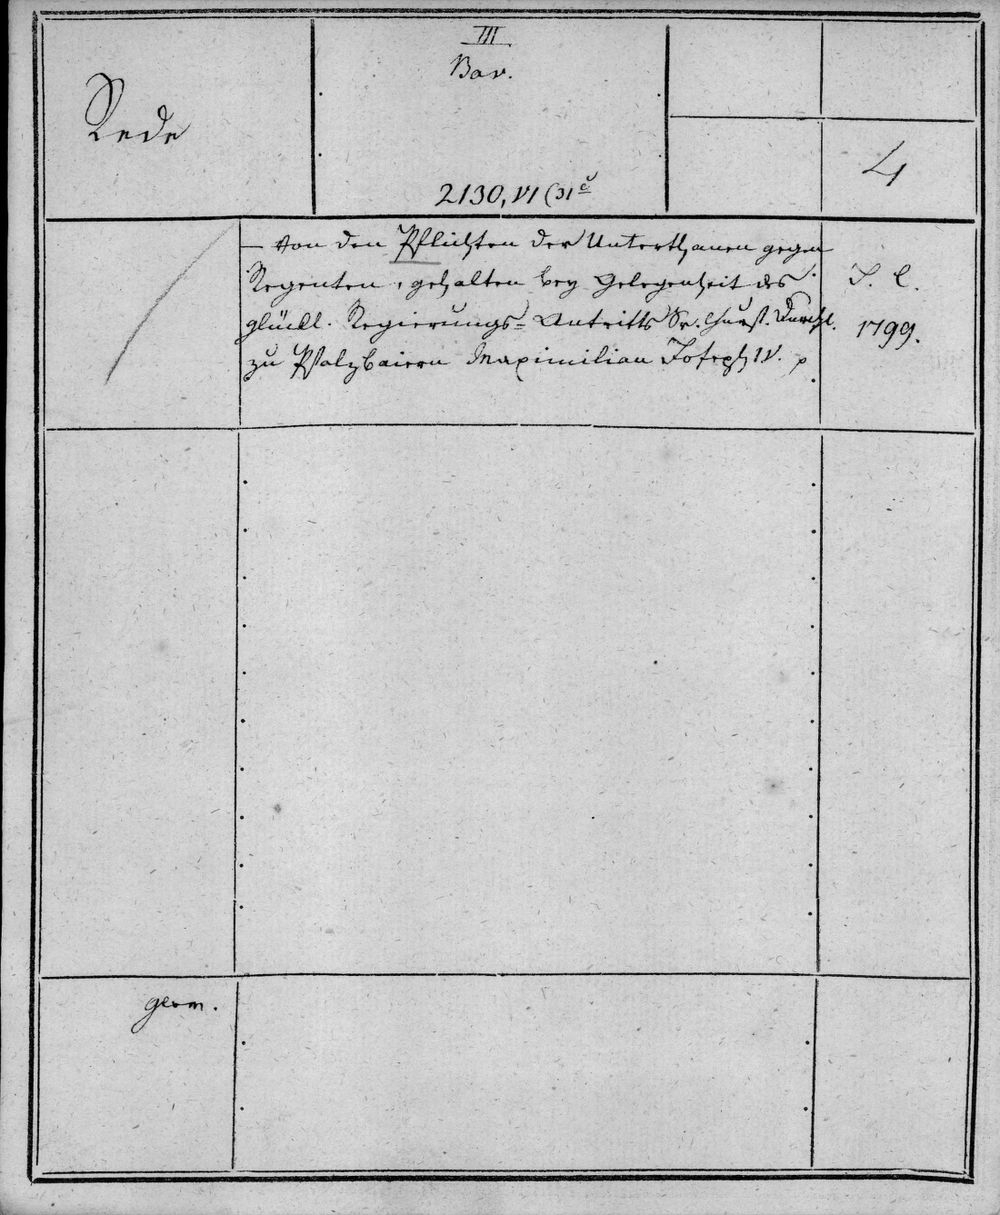 III
Bav.
Rede
4
2130,VI (31 c
— von den Pflichten der Unterthanen gegen
Regenten, gehalten bey Gelegenheit des
glückl. Regierungs=Antritts Sr. Churf. Durchl.
zu Pfalzbaiern Maximilian Joseph IV.
S. l.
1799.
germ.